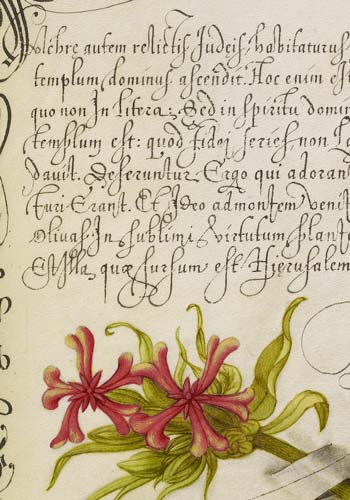 Pulchre autem relictis Judeis, habitaturus
templum dominus ascendit. Hoc enim est
quo non In litera, Sed in spiritu domin
templum est: quod fidei series non L
dauit. Deseruntur Ergo qui adoran
turi Erant. Et Ideo ad montem venit
Oliuas In sublimi virtutum plant
Et Illa, quæ sursum est Hierusalem